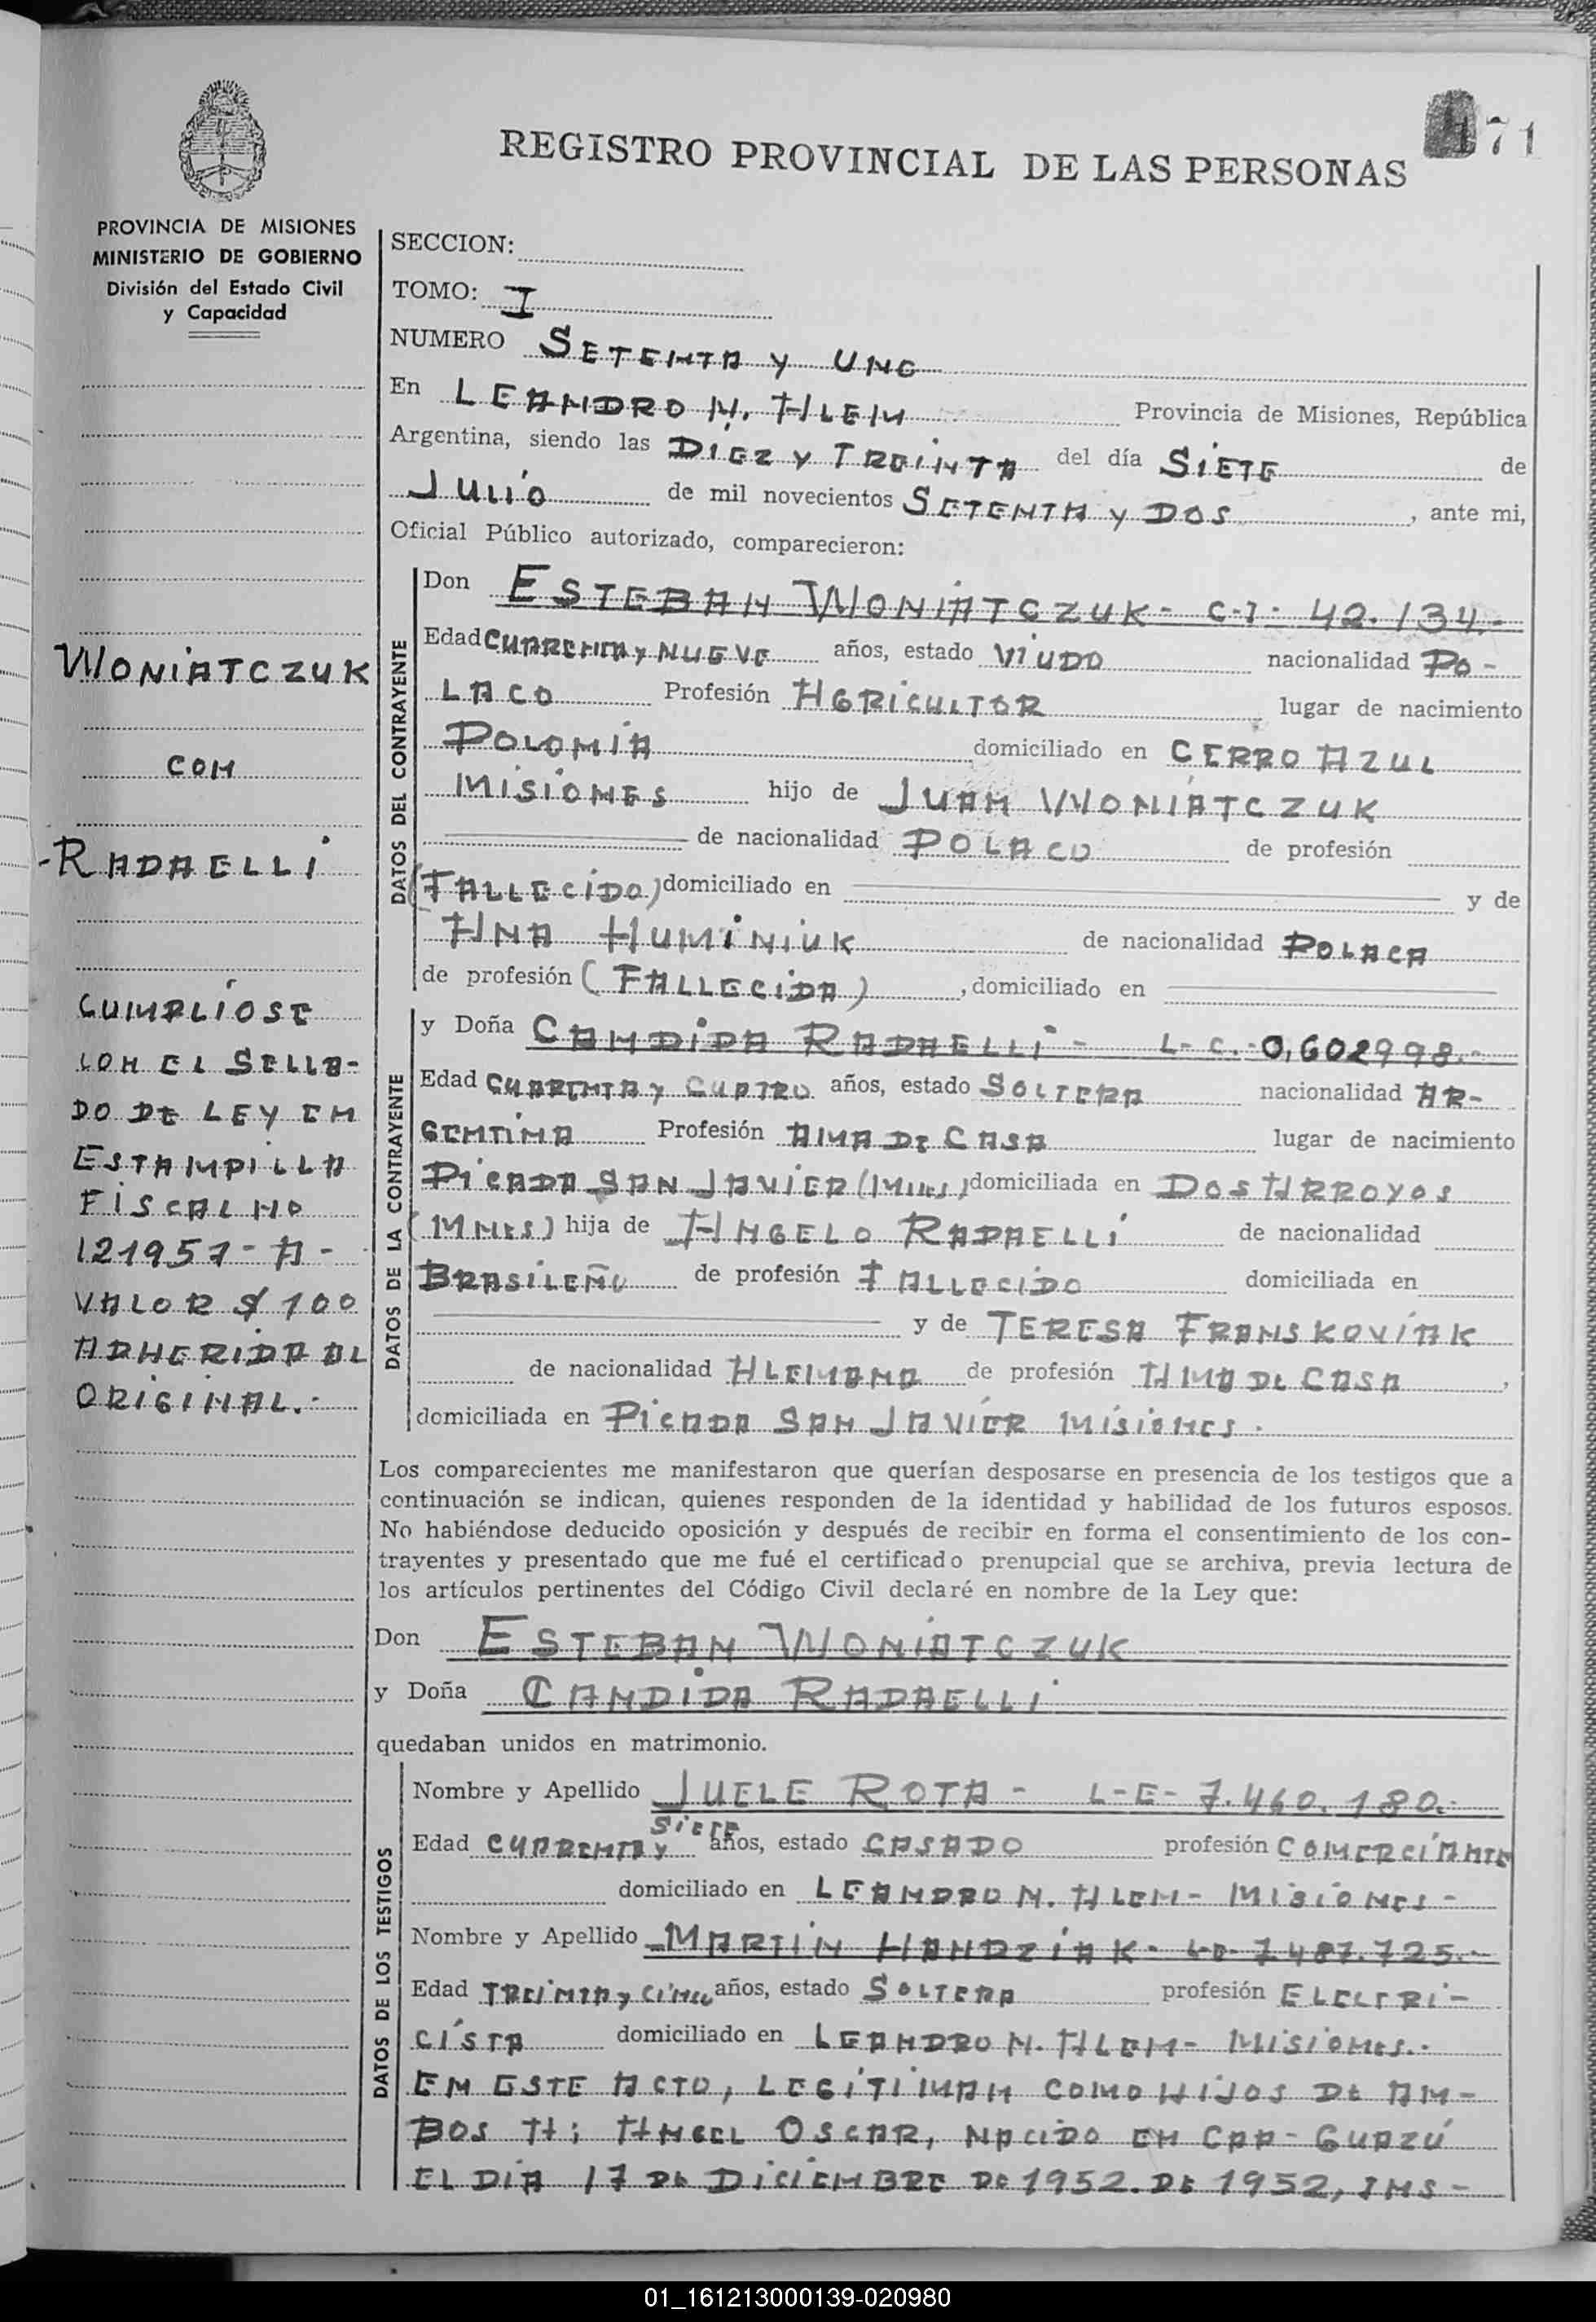 171
REGISTRO PROVINCIAL DE LAS PERSONAS
PROVINCIA DE MISIONES
MINISTERIO DE GOBIERNO
División del Estado Civil
y Capacidad
WONIATCZUK
CON
-RADAELLI
CUMPLIOSE
CON EL SELLA-
DO DE LEY EN
ESTAMPILLA
FISCAL NO
121957-A-
VALOR $ 100
ADHERIDA AL
ORIGINAL.-
SECCION:
TOMO: I
NUMERO SETENTA Y UNO
En LEANDRO N. ALEM Provincia de Misiones, República
Argentina, siendo las DIEZ Y TREINTA del día SIETE de
JULIO de mil novecientos SETENTA Y DOS, ante mi,
Oficial Público autorizado, comparecieron:
DATOS DEL CONTRAYENTE
Don ESTEBAN WONIATCZUK- C-I- 42.134.-
Edad CUARENTA Y NUEVE años, estado VIUDO nacionalidad PO-
LACO Profesión AGRICULTOR lugar de nacimiento
POLONIA domiciliado en CERRO AZUL
MISIONES hijo de JUAN WONIATCZUK
de nacionalidad POLACO de profesión
(FALLECIDO) domiciliado en y de
ANA HUMINIUK de nacionalidad POLACA
de profesión (FALLECIDA), domiciliado en
DATOS DE LA CONTRAYENTE
y Doña CANDIDA RADAELLI- L-C.-0,602998.-
Edad CUARENTA Y CUATRO años, estado SOLTERA nacionalidad AR-
GENTINA Profesión AMA DE CASA lugar de nacimiento
PICADA SAN JAVIER (Mnes) domiciliada en DOS ARROYOS
(MNES) hija de ANGELO RADAELLI de nacionalidad
BRASILEÑO de profesión FALLECIDO domiciliada en
y de TERESA FRANSKOVIAK
de nacionalidad ALEMANA de profesión AMA DE CASA,
domiciliada en PICADA SAN JAVIER MISIONES.
Los comparecientes me manifestaron que querían desposarse en presencia de los testigos que a
continuación se indican, quienes responden de la identidad y habilidad de los futuros esposos.
No habiéndose deducido oposición y después de recibir en forma el consentimiento de los con-
trayentes y presentado que me fué el certificado prenupcial que se archiva, previa lectura de
los artículos pertinentes del Código Civil declaré en nombre de la Ley que:
Don ESTEBAN WONIATCZUK
y Doña CANDIDA RADAELLI
quedaban unidos en matrimonio.
DATOS DE LOS TESTIGOS
Nombre y Apellido JUELE ROTA- L-E- 7.460.180.-
Edad CUARENTA Y SIETE años, estado CASADO profesión COMERCIANTE
domiciliado en LEANDRO N. ALEM- MISIONES-
Nombre y Apellido MARTIN HANDZIAK- 7.487.725.-
Edad TREINTA Y CINCO años, estado SOLTERO profesión ELECTRI-
CISTA domiciliado en LEANDRO N. ALEM- MISIONES.-
EN ESTE ACTO, LEGITIMAN COMO HIJOS DE AM-
BOS A: ANGEL OSCAR, NACIDO EN CAA-GUAZÚ
EL DIA 17 DE DICIEMBRE DE 1952. DE 1952, INS-
01_161213000139-020980